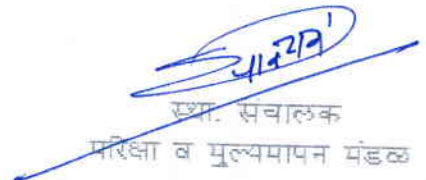 स्था. संचालक
परिक्षा व मुल्यमापन मंडळ